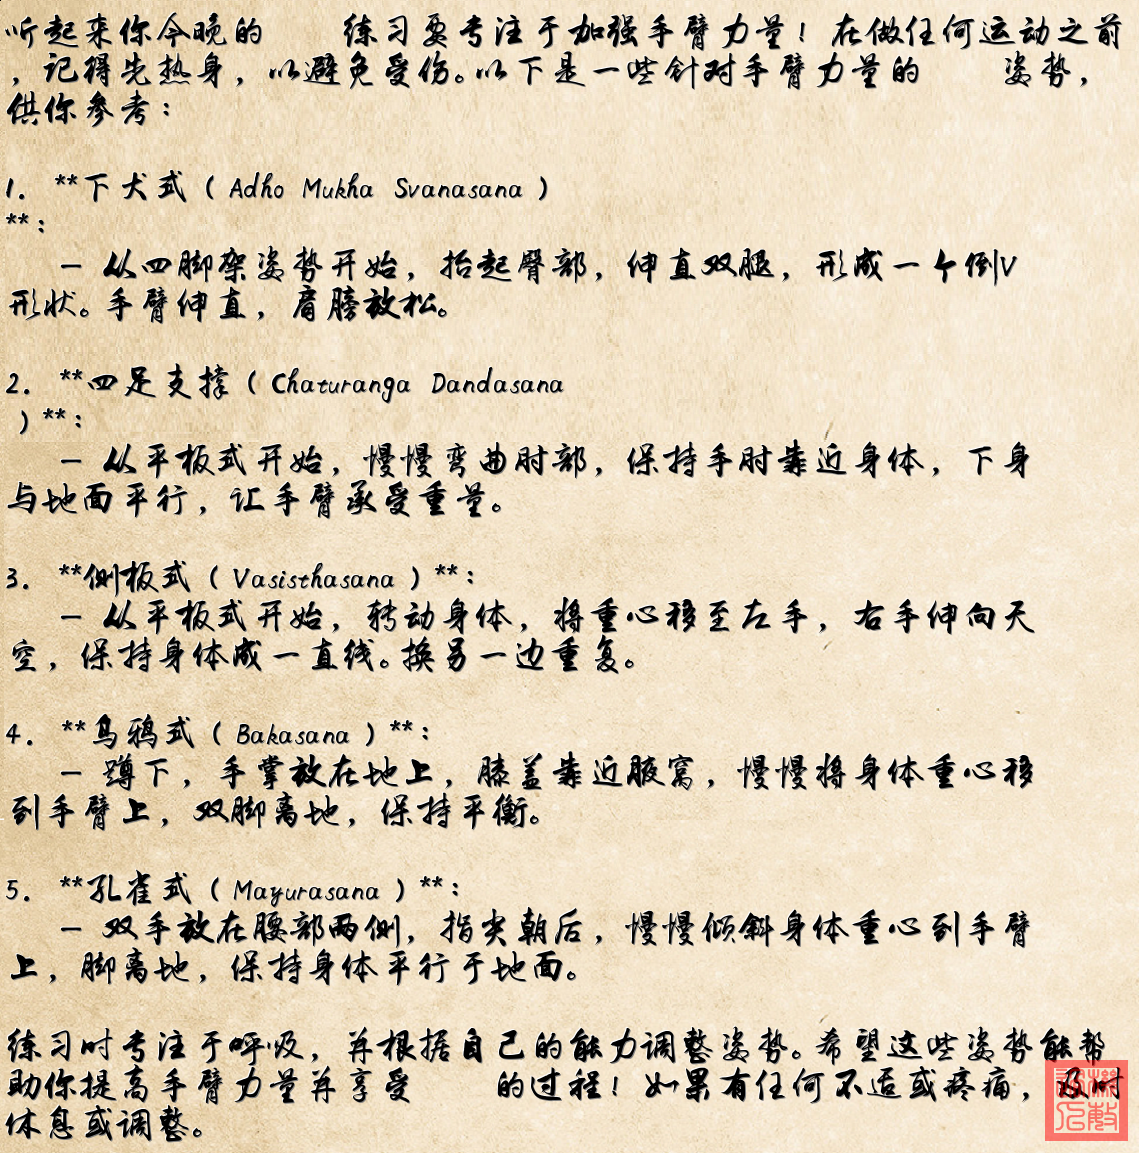 听起来你今晚的 练习要专注于加强手臂力量！在做任何运动之前
，记得先热身，以避免受伤。以下是一些针对手臂力量的 姿势，
供你参考：
1. **下犬式（Adho Mukha Svanasana）
**：
- 从四脚架姿势开始，抬起臀部，伸直双腿，形成一个倒V
形状。手臂伸直，肩膀放松。
2. **四足支撑（Chaturanga Dandasana
）**：
- 从平板式开始，慢慢弯曲肘部，保持手肘靠近身体，下身
与地面平行，让手臂承受重量。
3. **侧板式（Vasisthasana）**：
- 从平板式开始，转动身体，将重心移至左手，右手伸向天
空，保持身体成一直线。换另一边重复。
4. **乌鸦式（Bakasana）**：
- 蹲下，手掌放在地上，膝盖靠近腋窝，慢慢将身体重心移
到手臂上，双脚离地，保持平衡。
5. **孔雀式（Mayurasana）**：
- 双手放在腰部两侧，指尖朝后，慢慢倾斜身体重心到手臂
上，脚离地，保持身体平行于地面。
练习时专注于呼吸，并根据自己的能力调整姿势。希望这些姿势能帮
助你提高手臂力量并享受 的过程！如果有任何不适或疼痛，及时
休息或调整。